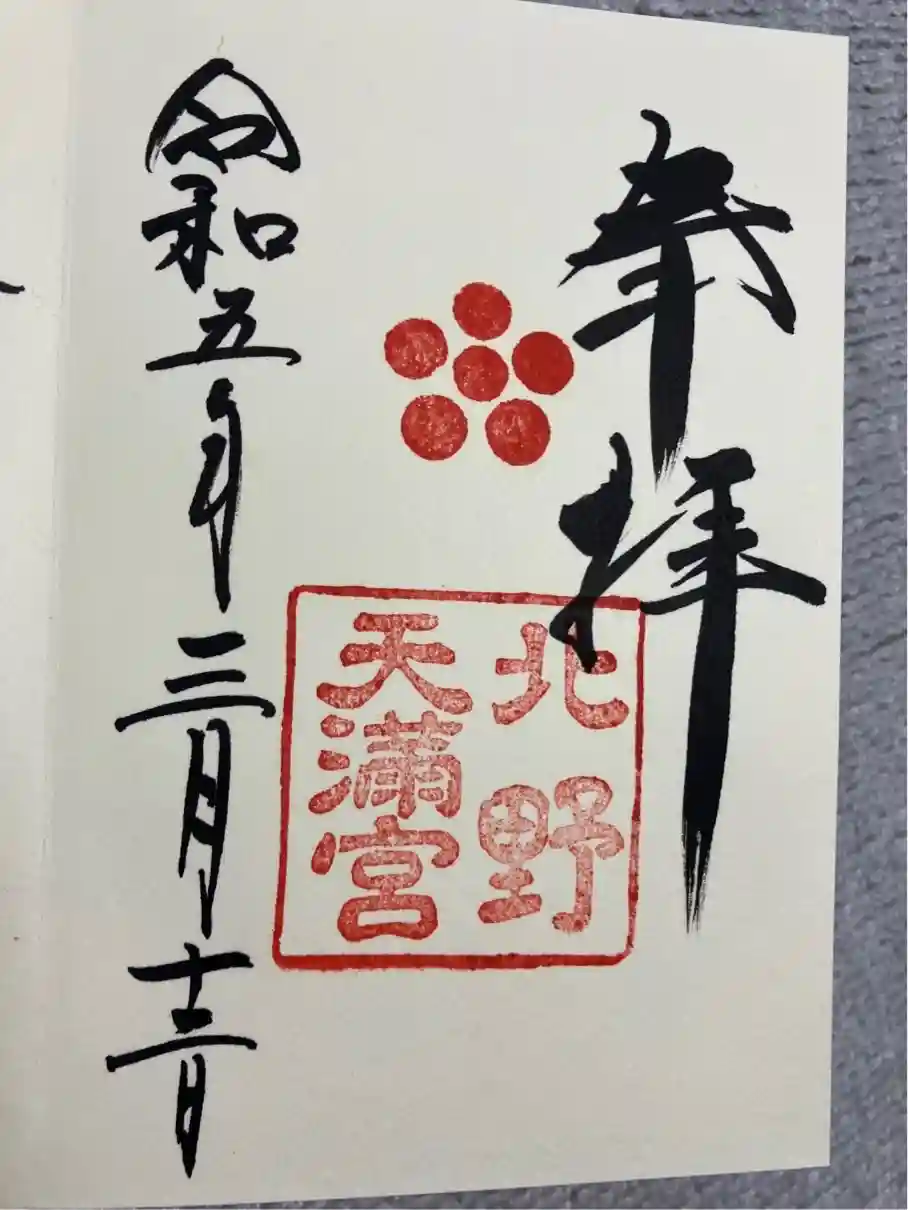 奉拝
北野
天満宮
令和五年三月十二日